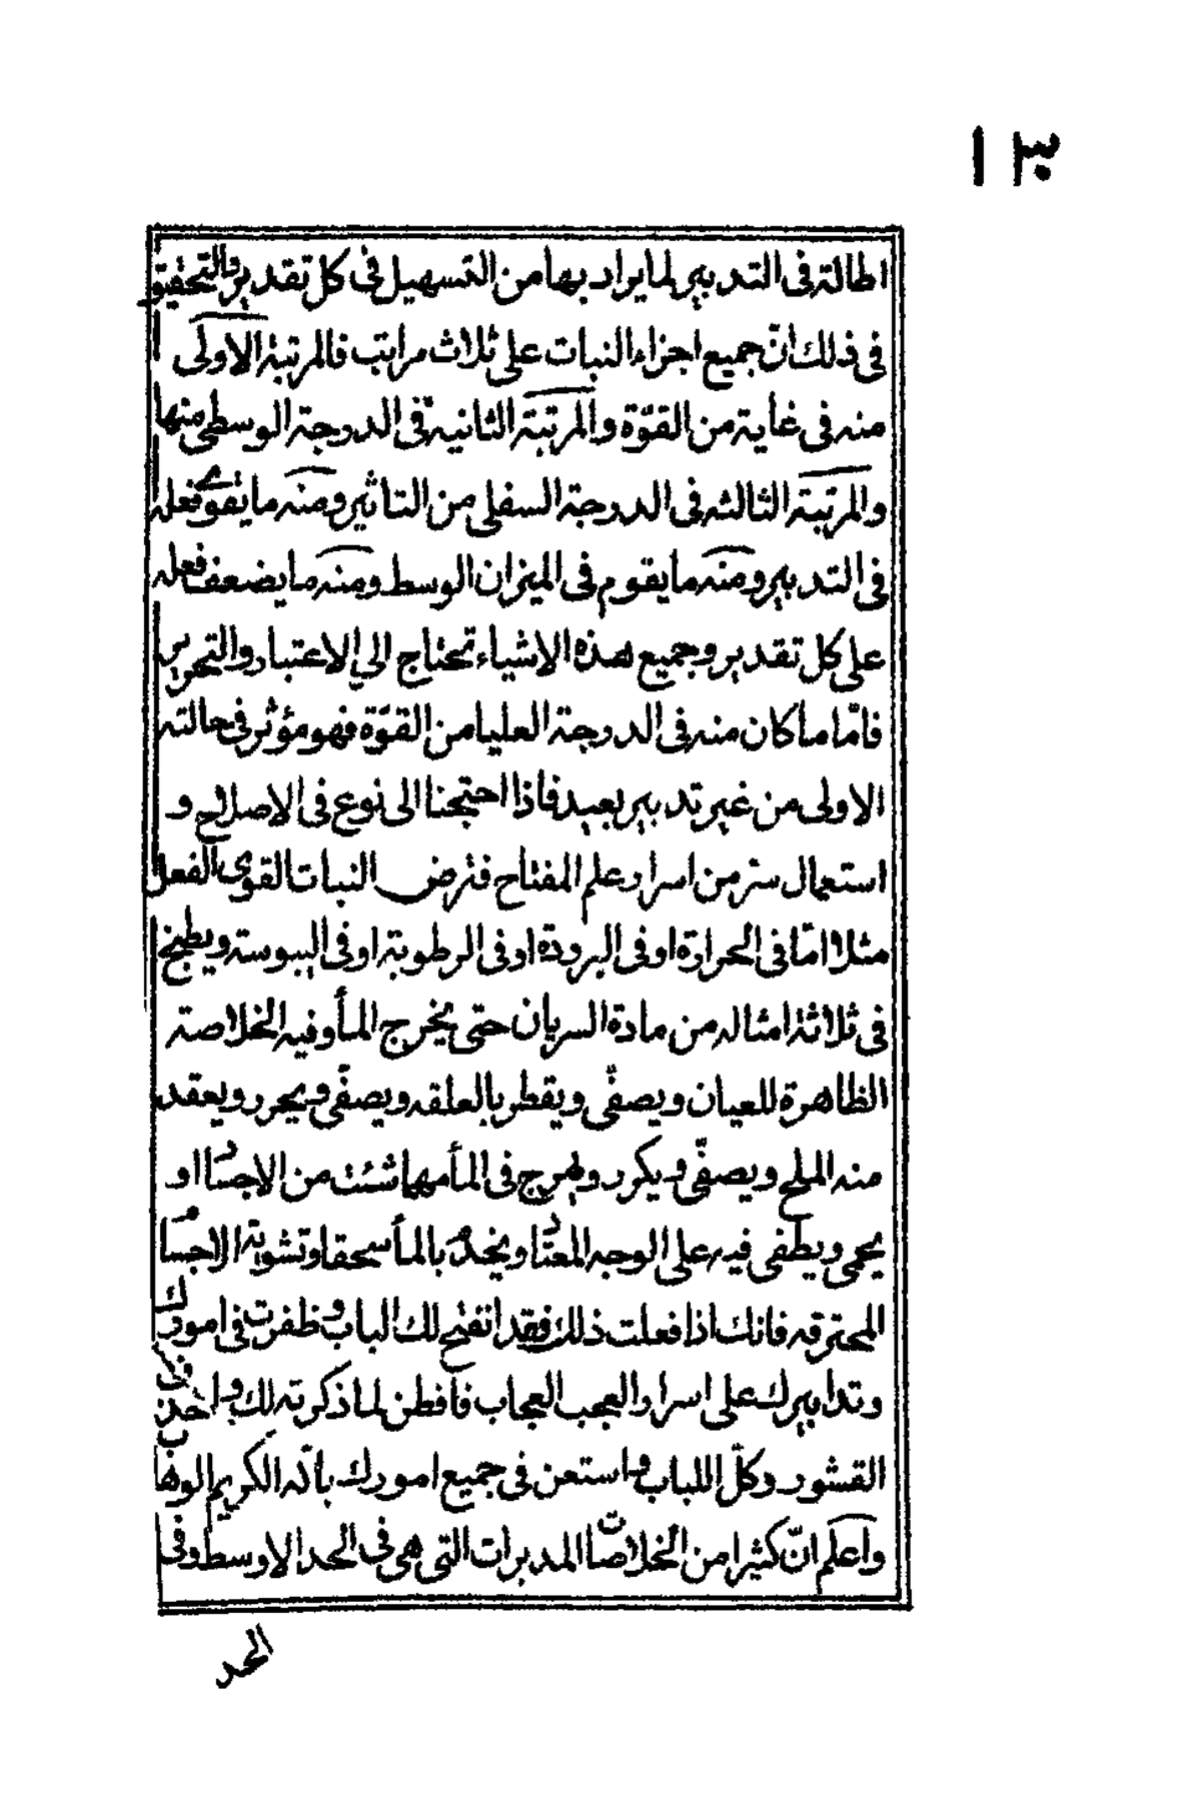 ١٣
اطالة فى التدبير لما يراد بها من التسهيل فى كل تقدير والتحقيق
فى ذلك انّ جميع اجزاء النبات على ثلاث مراتب فالمرتبة الاولى
منه فى غاية من القوّة والمرتبة الثانية فى الدرجة الوسطى منها
والمرتبة الثالثه فى الدرجة السفلى من التاثير ومنه ما يقوى فعله
فى التدبير ومنه ما يقوم فى الميزان الوسط ومنه ما يضعف فعله
على كل تقدير وجميع هذه الاشياء تحتاج الى الاعتبار والتحرير
فامّا ما كان منه فى الدرجة العليا من القوّة فهو مؤثر فى حالته
الاولى من غير تدبير بعيد فاذا احتجنا الى نوع فى الاصلاح و
استعمال سرّ من اسرار علم المفتاح فنرض النبات القوى الفعل
مثلا امّا فى الحرارة او فى البرودة او فى الرطوبة او فى اليبوسة ويطبخ
فى ثلاثة امثاله من مادة السريان حتى يخرج المأ وفيه الخلاصة
الظاهرة للعيان ويصفّى ويقطر بالعلقه ويصفّى ويحرر ويعقد
منه الملح ويصفّى ويكرر ويمرج فى المأ مهما شئت من الاجساد او
يحمى ويطفى فيه على الوجه المعتاد ويخدم بالمأ سحقا وتشوية الاجسام
المحترقه فانك اذا فعلت ذلك فقد انفتح لك الباب وظفرت فى امورك
وتدابيرك على اسرار العجب العجاب فافطن لما ذكرته لك واخذن فى
القشور وكلّ اللباب واستعن فى جميع امورك بالله الكريم الوهاب
واعلم انّ كثيرا من الخلاصات المدبرات التى هى فى الحد الاوسط وفى
الحد